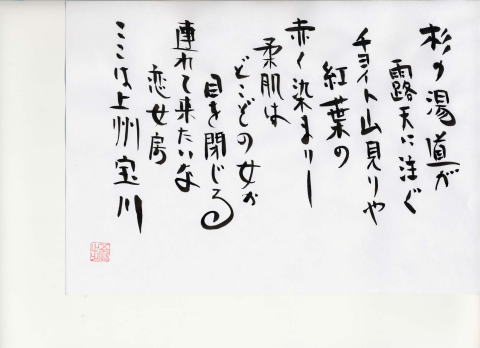 杉の湯道が
露天に注ぐ
チョイト山見りや
紅葉の
赤く染まりし
柔肌は
どこどの女か
目を閉じる
連れて来たいな
恋女房
ここは上州宝川